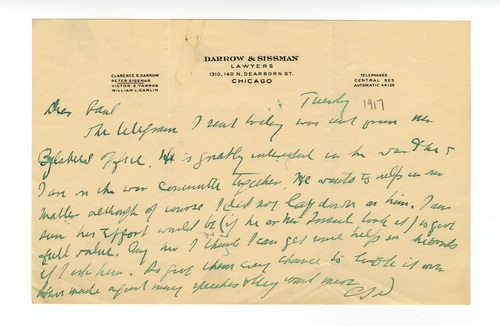 DARROW & SISSMAN
LAWYERS
1310, 140 N. DEARBORN ST.
CHICAGO
CLARENCE S. DARROW
PETER SISSMAN
VICTOR S. YARROS
WILLIAM L. CARLIN
TELEPHONES
CENTRAL 925
AUTOMATIC 44139
Tuesday 1917
Dear Paul
The telegram I sent today was sent from
office. He is greatly interested in the war & he &
I are on the war committee together. He wants to help in
matter although of course I did not on him. I am
sure his effort would be (if he or Mr Insull took it) to give
full value. I think I can get some help in
if I ask him. So give them every chance to look it over
have made a good many they want more
CSD